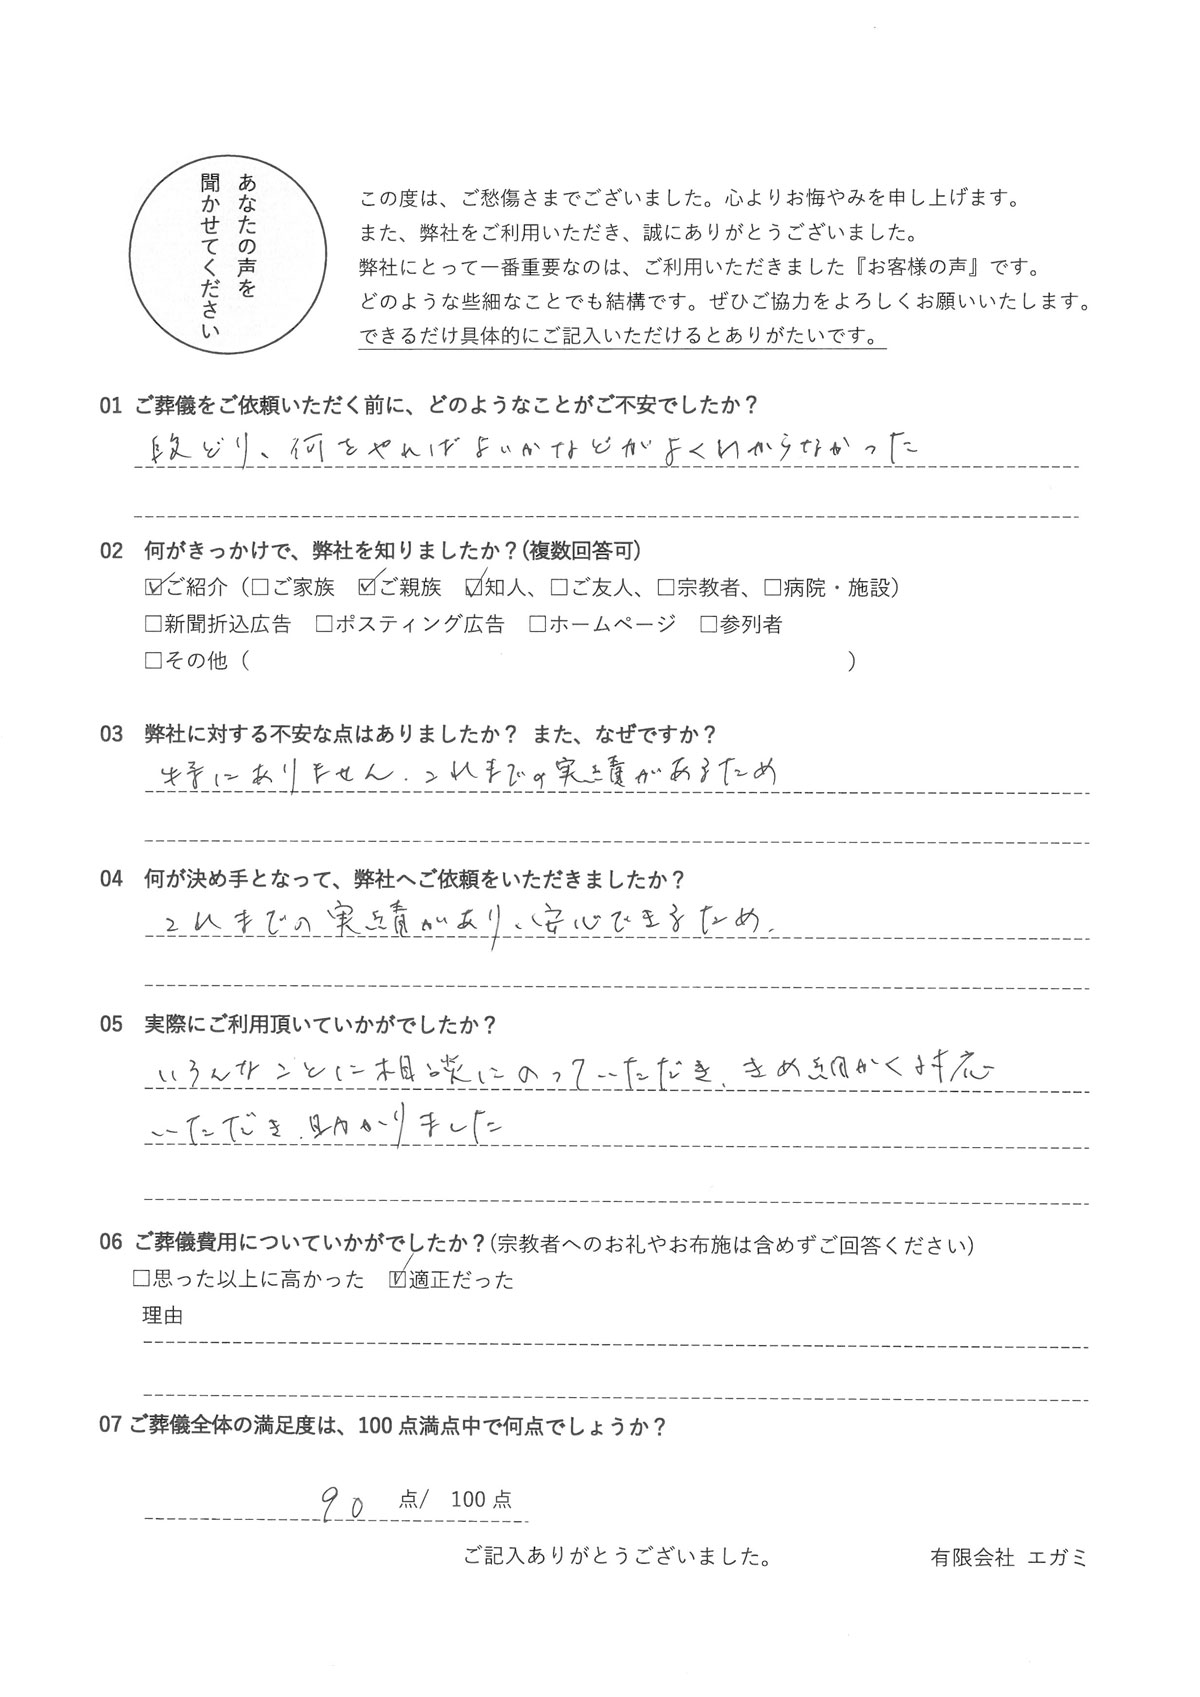 あなたの声を
聞かせてください
この度は、ご愁傷さまでございました。心よりお悔やみを申し上げます。
また、弊社をご利用いただき、誠にありがとうございました。
弊社にとって一番重要なのは、ご利用いただきました『お客様の声』です。
どのような些細なことでも結構です。ぜひご協力をよろしくお願いいたします。
できるだけ具体的にご記入いただけるとありがたいです。
01 ご葬儀をご依頼いただく前に、どのようなことがご不安でしたか？
段どり、何をやればよいかなどがよくわからなかった
02 何がきっかけで、弊社を知りましたか？(複数回答可)
☑ご紹介（□ご家族 ☑ご親族 ☑知人、□ご友人、□宗教者、□病院・施設）
□新聞折込広告 □ポスティング広告 □ホームページ □参列者
□その他（ ）
03 弊社に対する不安な点はありましたか？ また、なぜですか？
特にありません。これまでの実績があるため
04 何が決め手となって、弊社へご依頼をいただきましたか？
これまでの実績があり、安心できるため。
05 実際にご利用頂いていかがでしたか？
いろんなことに相談にのっていただき、きめ細かく対応
いただき、助かりました
06 ご葬儀費用についていかがでしたか？(宗教者へのお礼やお布施は含めずご回答ください)
□思った以上に高かった ☑適正だった
理由
07 ご葬儀全体の満足度は、100 点満点中で何点でしょうか？
90 点/ 100 点
ご記入ありがとうございました。 有限会社 エガミ